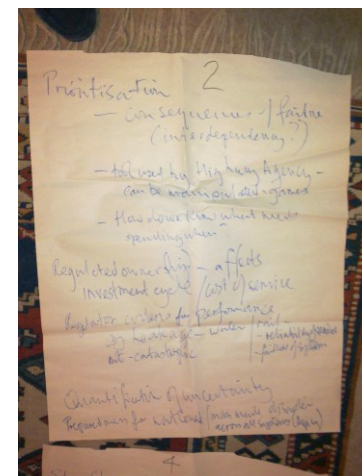 2
Prioritisation
- consequences / failure
(interdependency?)
- tool used by Highway Agency -
can be manipulated / games
- How do we know what needs
spending when
Regulated ownership - affects
investment cycle / cost of service
Regulator evidence for performance
eg leakage - water / rail -
not - catastrophic
- failure of system
Quantification of uncertainty
Preparedness for worst case / man made disruption
across all systems
4